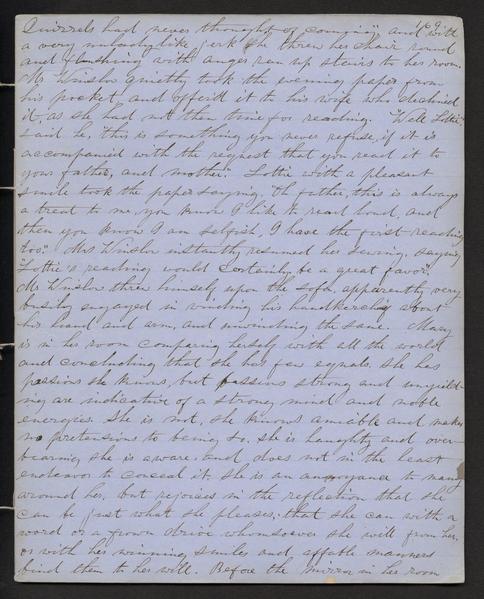 169
Quirrels had never thought of coming", and with
a very unladylike jerk she threw her chair round
and flushing with anger ran up stairs to her room.
Mr Winslow quietly took the evening paper from
his pocket and offered it to his wife who declined
it, as she had not then time for reading. "Well Lottie"
said he, "this is something you never refuse, if it is
accompanied with the request that you read it to
your father, and mother." Lottie with a pleasant
smile took the paper saying, "Oh father, this is always
a treat to me, you know I like to read loud, and
then you know I am selfish, I have the first reading
too". Mrs Winslow instantly resumed her sewing, saying,
"Lottie's reading would certainly be a great favor".
Mr Winslow threw himself upon the sofa, apparently very
busily engaged in winding his handkerchief about
his hand and arm, and unwinding the same. Mary
is in her room comparing herself with all the world
and concluding that she has few equals. She has
passions she knows, but passions strong and unyield-
ing are indicative of a strong mind and noble
energies. She is not, she knows amiable and makes
no pretensions to being so, she is haughty and over-
bearing she is aware, and does not in the least
endeavor to conceal it, she is an annoyance to many
around her, but rejoices in the reflection that she
can be just what she pleases; that she can with a
word or a frown drive whomsoever she will from her,
or with her winning smiles and affable manners
bind them to her will. Before the mirror in her room